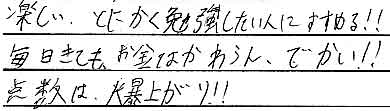 楽しい、とにかく勉強したい人にすすめる!!
毎日きても、お金はかわらん、でかい!!
点数は、大暴上がり!!